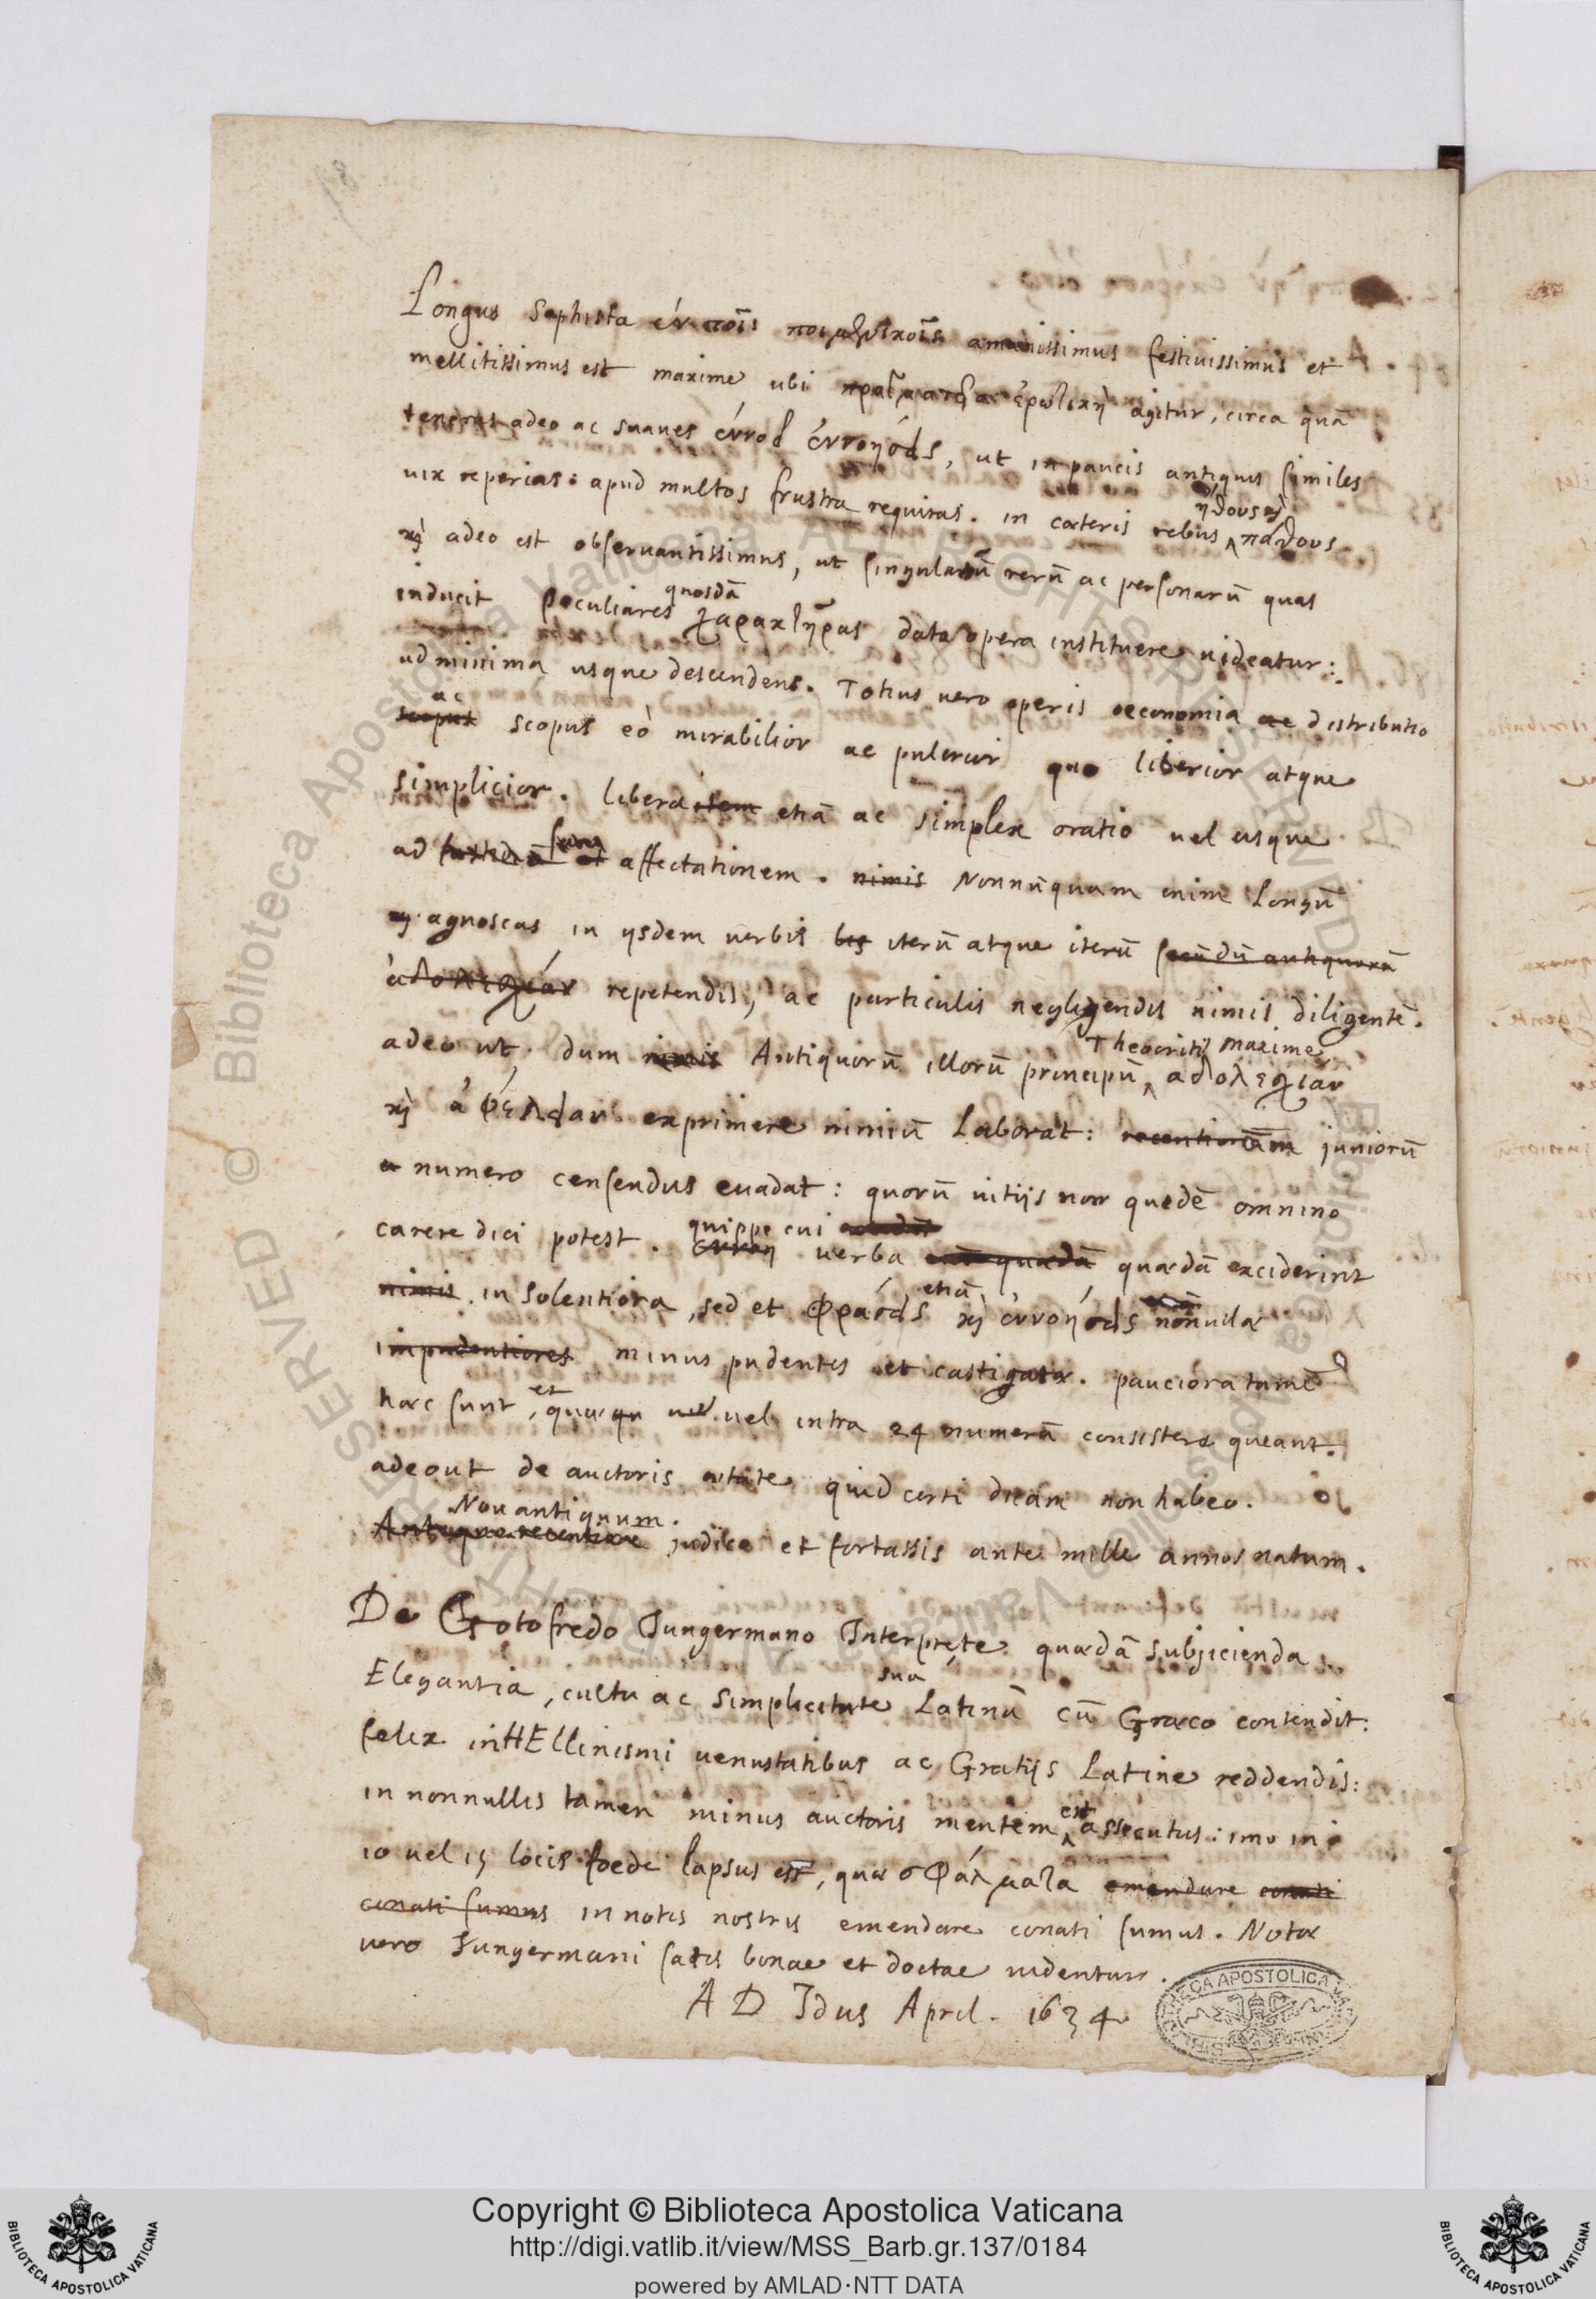 18
Longus Sophista ἐν τοῖς ποιμενικοῖς amœnissimus festiuissimus et
mellitissimus est maxime ubi πραγματεία ἐρωτικὴ agitur, circa quã
teneras adeo ac suaues ἐννοεῖ ἐννοήσεις, ut in paucis antiquis similes
uix reperias: apud multos frustra requiras. in cæteris rebus ἤθους καὶ πάθους
καὶ adeo est obseruantissimus, ut singularũ rerũ ac personarũ quas
inducit peculiares quosdã χαρακτῆρας data opera instituere uideatur:
ad minima usque descendens. Totius uero operis oeconomia ac distributio
ac scopus scopus eò mirabilior ac pulcrior quo liberior atque
simplicior. libera item etiã ac simplex oratio uel usque
ad affectationem. nimis Nonnũquam enim Longũ
agnoscas in ijsdem uerbis bis iterũ atque iterũ secũdũ antiquorũ
ἀδολεσχίαν repetendis, ac particulis negligendis nimis diligentẽ.
adeo ut, dum nimis Antiquorũ illorũ principũ Theocriti maxime ἀδολεσχίαν
καὶ ἀφέλειαν exprimere nimiũ laborat: recentiorũ juniorũ
numero censendus euadat: quorũ uitijs non quedẽ omnino
carere dici potest. quippe cui uerba quædã quædã exciderint
nimis insolentiora, sed et φράσεις etiã καὶ ἐννοήσεις nonnullæ
impudentiores minus pudentes et castigatæ. pauciora tamẽ
hæc sunt, et quæ uel intra 24 numerũ consistere queant.
adeo ut de auctoris ætate quid certi dicam non habeo.
Non antiquum. judico et fortassis ante mille annos natum.
De Gotofredo Jungermano Interprete quædã subjicienda.
Elegantia, cultu ac simplicitate sua Latinũ cũ Græco contendit:
felix in HEllinismi uenustatibus ac Gratijs Latine reddendis:
in nonnullis tamen minus auctoris mentem est assecutus: imo in
10 uel 15 locis foede lapsus est, quæ σφάλματα emendare conati
conati sumus in notis nostris emendare conati sumus. Notæ
uero Jungermani satis bonae et doctae uidentur.
A D Idus April. 1634
BIBLIOTECA APOSTOLICA VATICANA
Copyright © Biblioteca Apostolica Vaticana
http://digi.vatlib.it/view/MSS_Barb.gr.137/0184
powered by AMLAD·NTT DATA